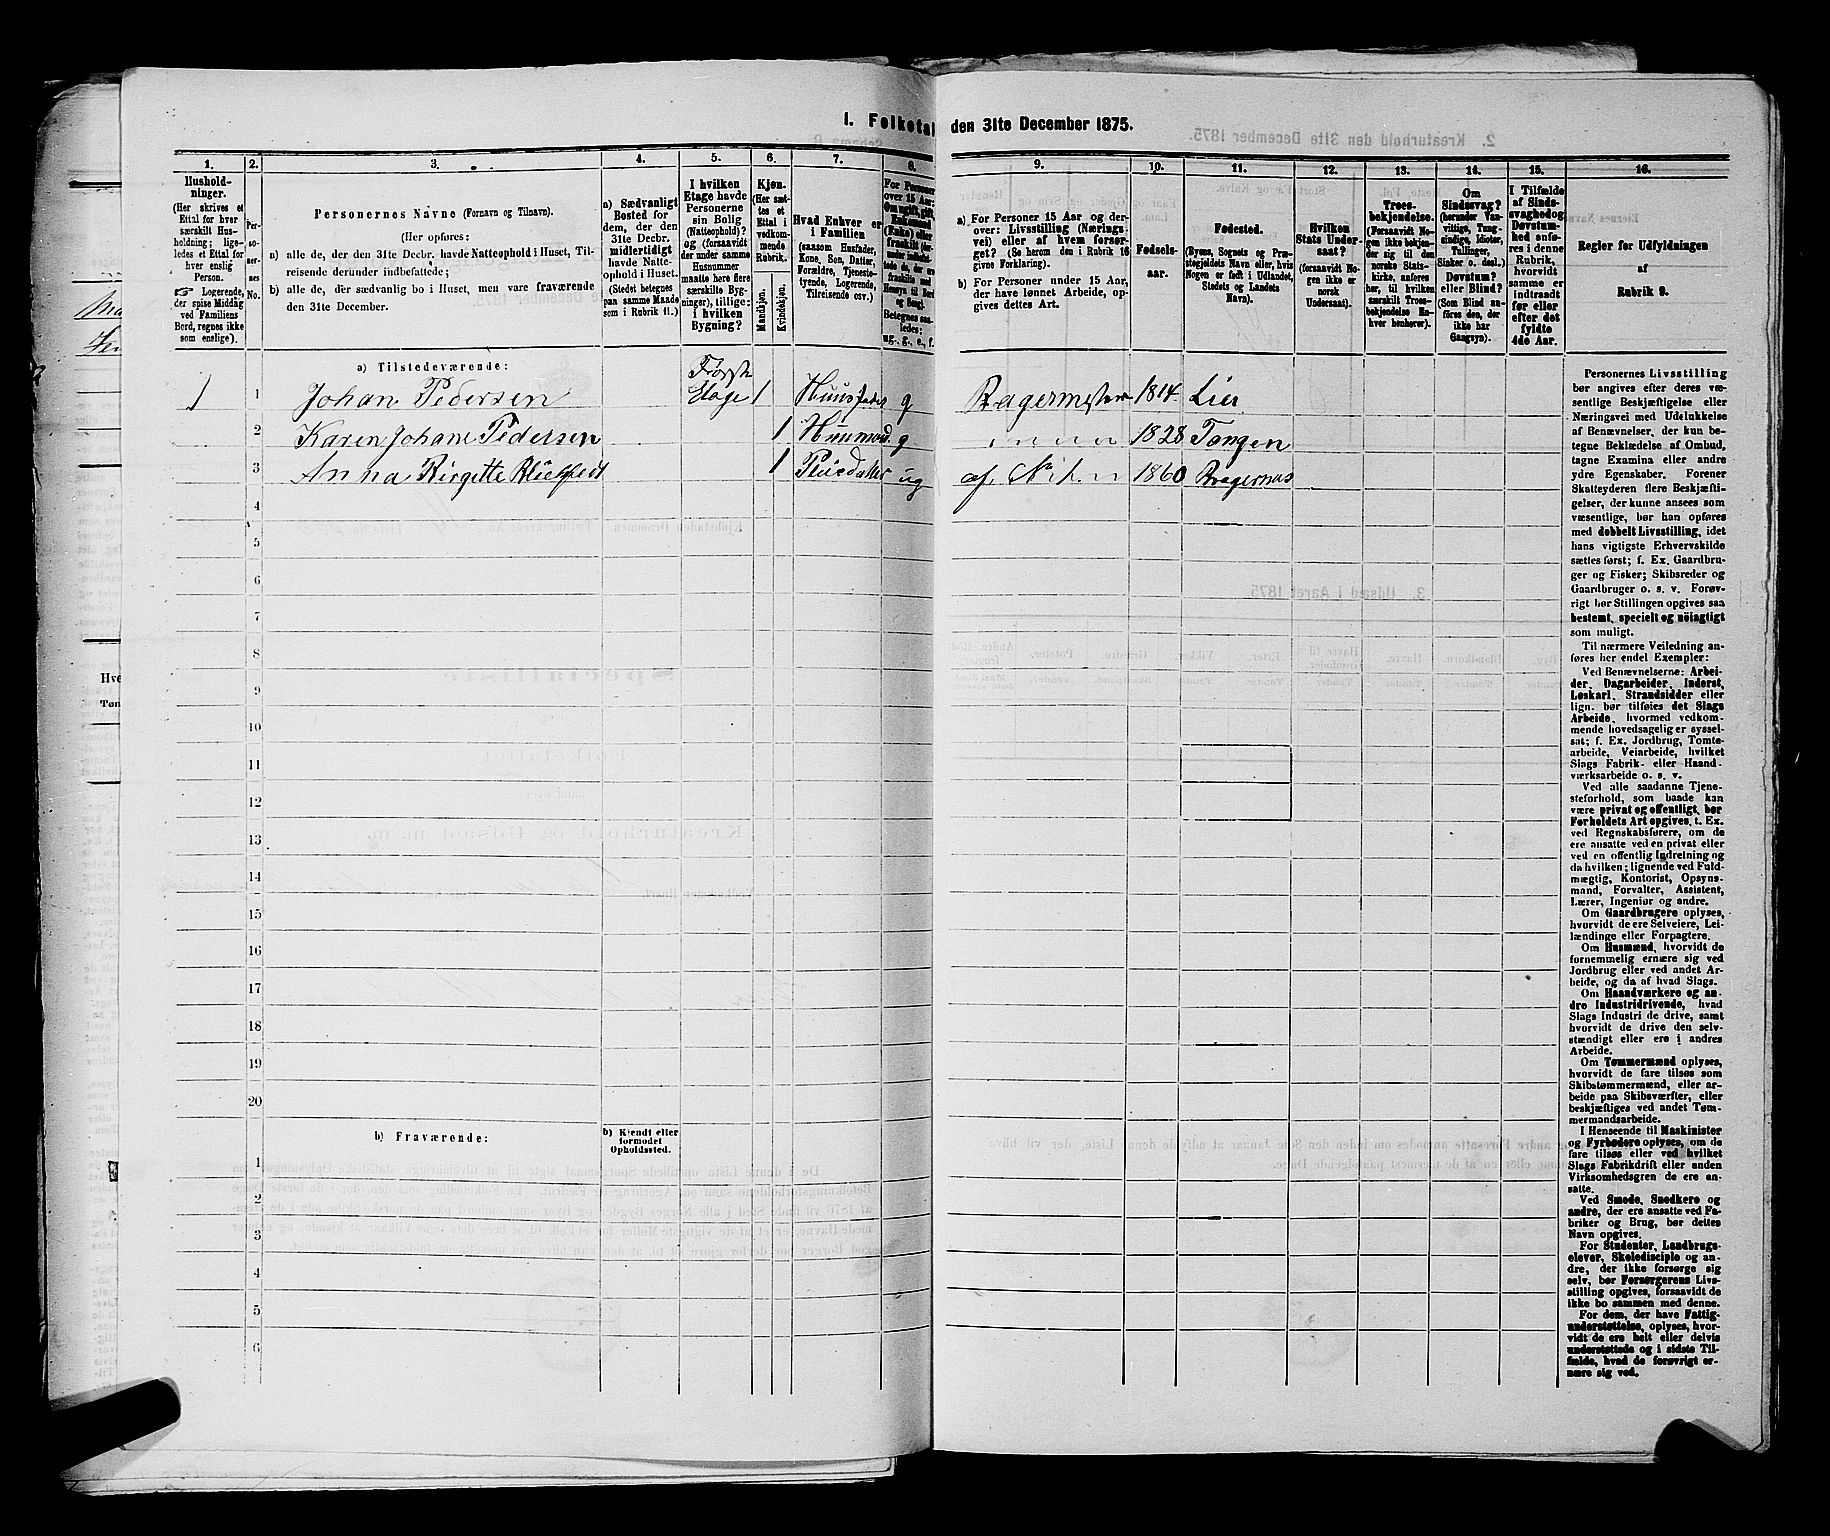 I. Folketal den 31te December 1875.
1.
2.
3.
4.
5.
6.
7.
8.
9.
10.
11.
12.
13.
14.
15.
16.
Husholdninger.
(Her skrives et
Ettal for hver
særskilt Husholdning; ligeledes et Ettal for
hver enslig
Person.
☞ Logerende,
der spise Middag
ved Familiens
Bord, regnes ikke
som enslige).
Personernes No.
Personernes Navne (Fornavn og Tilnavn).
(Her opføres:
a) alle de, der den 31te Decbr. havde Natteophold i Huset, Tilreisende derunder indbefattede;
b) alle de, der sædvanlig bo i Huset, men vare fraværende
den 31te December.
a) Sædvanligt
Bosted for
dem, der den
31te Decbr.
midlertidigt
havde Natteophold i Huset.
(Stedet betegnes
paa samme Maade
som i Rubrik 11.)
I hvilken
Etage havde
Personerne
sin Bolig
(Natteophold)?
og (forsaavidt
der under samme
Husnummer
maatte høre flere
særskilte Bygninger), tillige:
i hvilken
Bygning?
Kjøn.
(Her sættes et
Ettal i
vedkommende
Rubrik.
Mandkjøn.
Kvindekjøn.
Hvad Enhver er
i Familien
(saasom Husfader,
Kone, Søn, Datter,
Forældre, Tjenestetyende, Logerende,
Tilreisende osv.)
For Personer
over 15 Aar:
Om ugift, gift,
Enkemand
(Enke) eller
fraskilt
Betegnes saaledes:
ug., g., e., f.
a) For Personer 15 Aar og derover: Livsstilling (Næringsvei) eller af hvem forsørget? (Se herom den i Rubrik 16
givne Forklaring).
b) For Personer under 15 Aar,
der have lønnet Arbeide, opgives dettes Art.
Fødselsaar.
Fødested.
(Byens, Sognets og Præstegjeldets Navn eller, hvis
Nogen er født i Udlandet,
Stedets og Landets
Navn).
Hvilken
Stats Undersaat?
(forsaavidt Nogen ikke er
norsk
Undersaat).
Troesbekjendelse.
(Forsaavidt Nogen ikke bekjender sig til den
norske Statskirke, anføres
her, til hvilken
særskilt Troesbekjendelse Enhver henhører).
Om
Sindssvag?
(herunder Vanvittige, Tungsindige, Idioter,
Tullinger,
Sinker o. desl.)
Døvstum?
eller Blind?
(Som Blind anføres den, der
ikke har
Gangsyn).
I Tilfælde
af Sindssvaghed og
Døvstumhed anføres i denne
Rubrik,
hvorvidt
samme er
indtraadt
før eller
efter det
fyldte
4de Aar.
Regler for Udfyldningen
af
Rubrik 9.
a) Tilstedeværende:
1 1 Johan Pedersen Første Etage 1 Huusfader g Bagermester 1814 Lier
2 Karen Johane Pedersen 1 Huusmod. g " " " " 1828 Tangen
3 Anna Birgitte 1 Pleiedatter ug af 1860 Bragernæs
4
5
6
7
8
9
10
11
12
13
14
15
16
17
18
19
20
b) Fraværende:
b) Kjendt eller
formodet
Opholdssted.
1
2
3
4
5
6
Personernes Livsstilling
bør angives efter deres væsentlige Beskjæftigelse eller
Næringsvei med Udelukkelse
af Benævnelser, der kun betegne Beklædelse af Ombud,
tagne Examina eller andre
ydre Egenskaber. Forener
Skatteyderen flere Beskjæftigelser, der kunne ansees som
væsentlige, bør han opføres
med dobbelt Livsstilling, idet
hans vigtigste Erhvervskilde
sættes først; f. Ex. Gaardbruger og Fisker; Skibsreder og
Gaardbruger o. s. v. Forøvrigt bør Stillingen opgives saa
bestemt, specielt og nøiagtigt
som muligt.
Til nærmere Veiledning anføres her endel Exempler:
Ved Benævnelserne: Arbeider, Dagarbeider, Inderst,
Løskarl, Strandsidder eller
lign. bør tilføies det Slags
Arbeide, hvormed vedkommende hovedsagelig er sysselsat; f. Ex. Jordbrug, Tomtearbeide, Veiarbeide, hvilket
Slags Fabrik- eller Haandværksarbeide o. s. v.
Ved alle saadanne Tjenesteforhold, som baade kan
være privat og offentligt, bør
Forholdets Art opgives, t. Ex.
ved Regnskabsførere, om de
ere ansatte ved en privat eller
ved en offentlig Indretning og
da hvilken; lignende ved Fuldmægtig, Kontorist, Opsynsmand, Forvalter, Assistent,
Lærer, Ingeniør og andre.
Om Gaardbrugere oplyses,
hvorvidt de ere Selveiere, Leilændinge eller Forpagtere.
Om Husmænd, hvorvidt de
fornemmelig ernære sig ved
Jordbrug eller ved andet Arbeide, og da af hvad Slags.
Om Haandværkere og andre Industridrivende, hvad
Slags Industri de drive, samt
hvorvidt de drive den selvstændigt eller ere i andres
Arbeide.
Om Tømmermænd oplyses,
hvorvidt de fare tilsøs som
Skibstømmermænd, eller arbeide paa Skibsværfter, eller
beskjæftiges ved andet Tømmermandsarbeide.
I Henseende til Maskinister
og Fyrbødere oplyses, om de
fare tilsøs eller ved hvilket
Slags Fabrikdrift eller anden
Virksomhedsgren de ere ansatte.
Ved Smede, Snedkere og
andre, der ere ansatte ved Fabriker og Brug, bør dettes
Navn opgives.
For Studenter, Landbrugselever, Skoledisciple og andre, der ikke forsørge sig
selv, bør Forsørgerens Livsstilling opgives, forsaavidt de
ikke bo sammen med denne.
For dem, der have Fattigunderstøttelse, oplyses, hvorvidt de ere helt eller delvis
understøttede og i sidste Tilfælde, hvad de forøvrigt ernære sig ved.